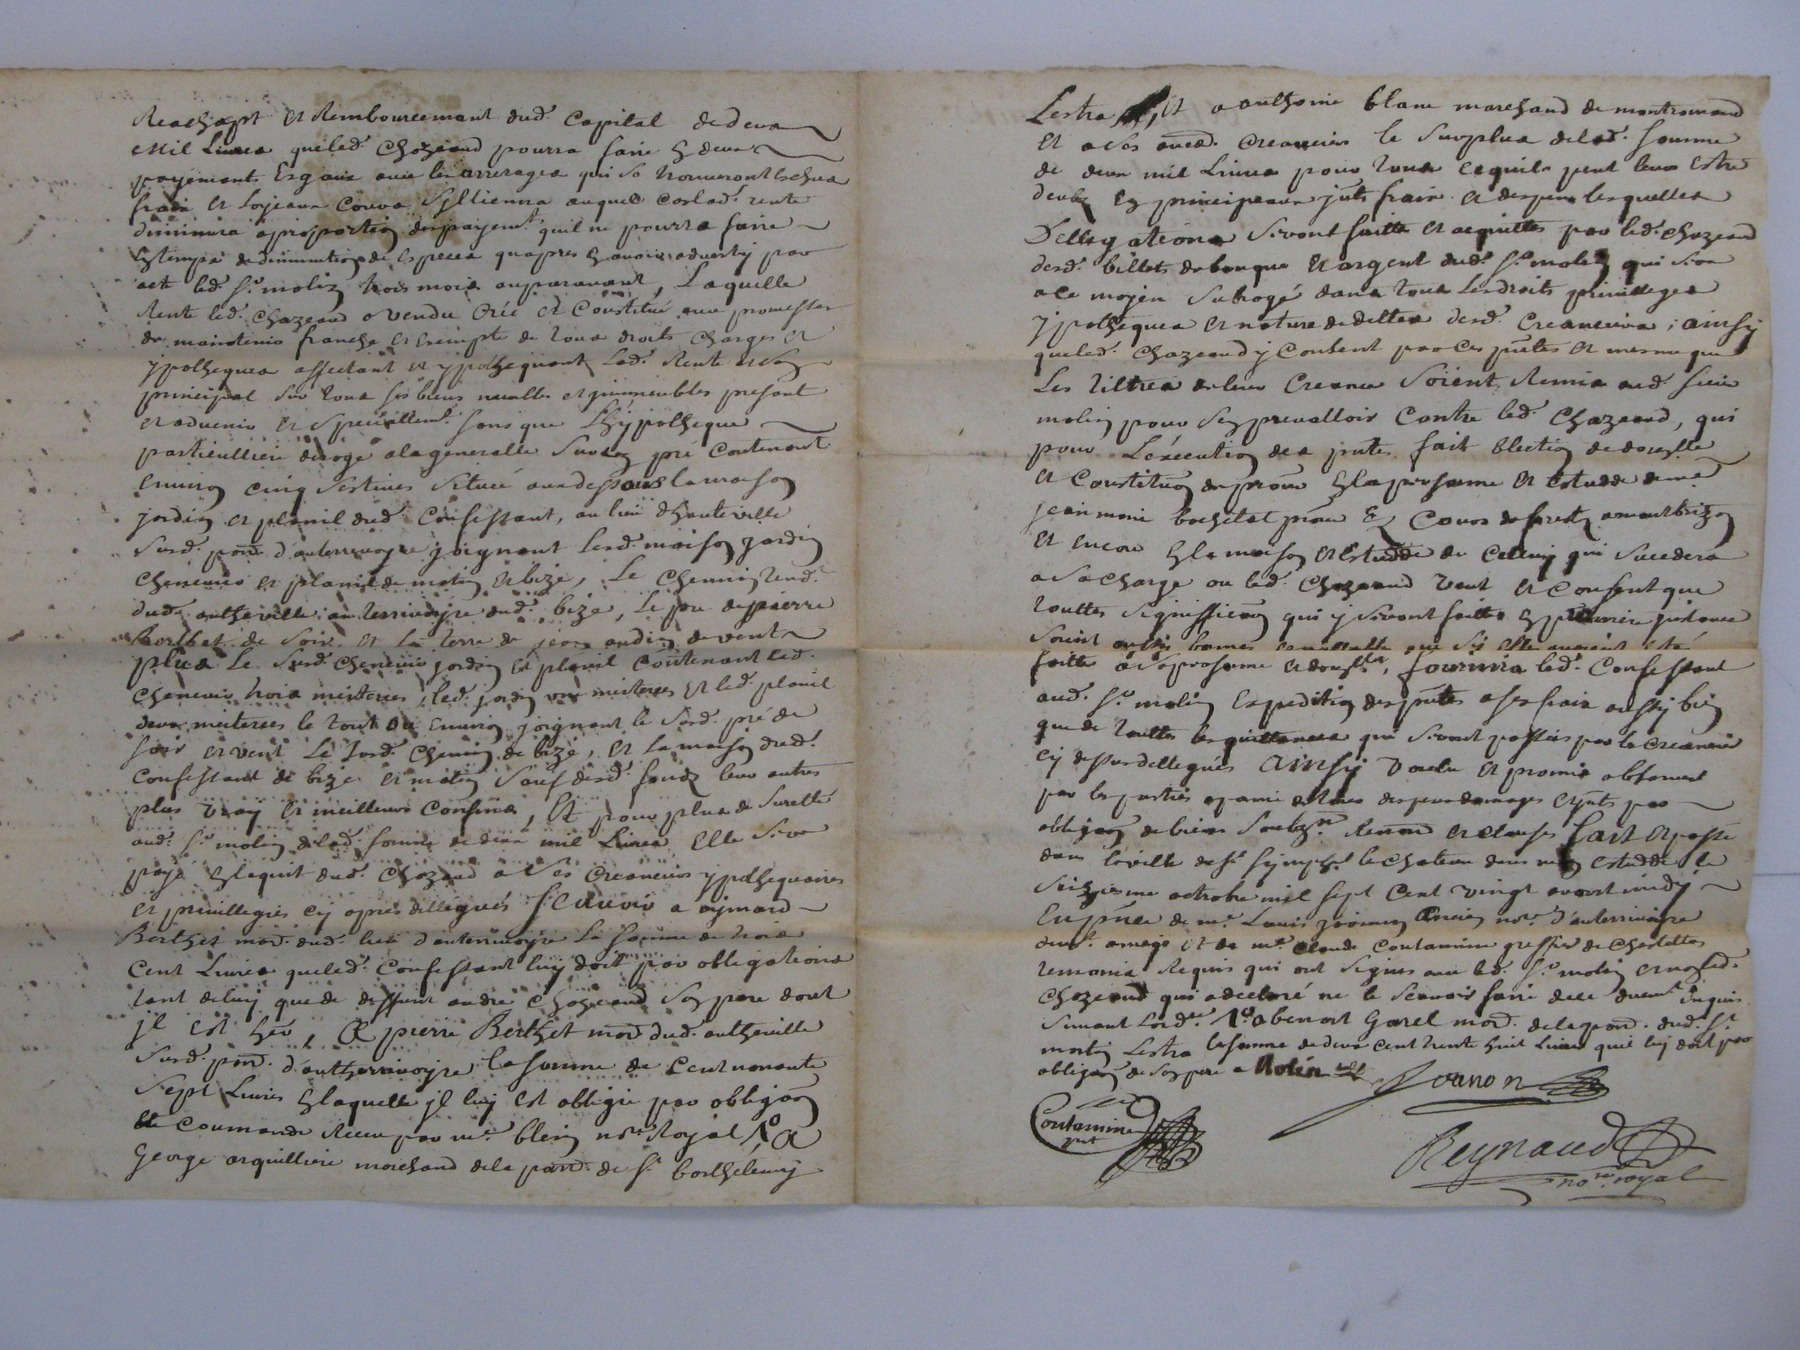 Reachapt et Remboursemant dud. Capital de deux
Mil Livres queled. Chazeaud pourra faire En deux
payements Esgaux avec les arrerages qui se trouveront Escheus
frais et Loyeaux Couts auquel cas lad. rente
diminura a proportion des payem.ts qu'il ne pourra faire
En temps de diminution de Especes qu'apres En avoir adverty par
acte led. Sr. molin trois mois auparavant, Laquelle
Rente led. Chazeaud a vendu Créé et Constitué avec promesses
de maintenir franche et Exempte de tous droits Charges et
ypotheques affectant et ypothequant Lad. Rente et son
principal sur tous ses biens meubles et immeubles present
et advenir et speciallem.t sans que Lhypotheque
particulliere deroge a la generalle Sur un pré Contenant
Environ cinq Sestives Situé au dessous la maison
jardin et planil dud. Confessant, au lieu d'hauteville
Susd. parr. d'auterrivoyre joignant Lesd. maison jardin
Cheneviere et planil de matin et bize, Le Chemin tend.t
dud. autheville au terrivoyre dud. bize, Le pré de pierre
Berthet de Soir et La terre de jean de vent
plus Le Susd. Chenevier jardin et planil Contenant Led.
Chenevier trois meiterees, led. jardin une meiteree et led. planil
deux meiterees le tout Environ joignant le Susd. pré de
soir et vent Le Susd. Chemin de bize, et La maison dud.
Confessant de bize et matin Sauf desd. fonds leurs autres
plus vray et meilleurs Confins, Et pour plus de Suretté
aud. Sr. molin de lad. Somme de deux mil Livres Elle Sera
payé En laquit dud. Chazeaud a Ses Creanciers ypothequaires
et privillegiés Cy apres dellegués Scavoir a aymard
Berthet marc. dud. lieu d'auterrivoyre La Somme de trois
Cent Livres queled. Confessant luy doit par obligations
tant de luy que de deffunt andré Chazeaud Son pere dont
jl est heir, a pierre Berthet marc. dud. autheville
Susd. parr. d'autherrivoyre La Somme de Cent nonante
Sept Livres En laquelle jl luy est obligé par obligaon
de Coumande Receu par me. blein nore. Royal, a
George arquilliere marchand de la parr. de St. barthelemy
Lestra, et a anthoine blanc marchand de montromand
et a ses autres Creanciers le Surplus de lad. Somme
de deux mil Livres pour tous Ce quil peut leur Estre
deubt En principeaux frais et despens lesquelles
Dellegations Seront faittes et acquittés par led. Chazeaud
desd. billets de banque et argent dud. Sr. molin qui Sera
a ce moyen Subrogé dans tous Lesdroits privilleges
ypotheques et nature de dettes desd. Creanciers, ainsy
queled. Chazeaud y Consent par Ces pntes et mesme que
Les tiltres de leur Creance Soient Remis aud. Sieur
molin pour Sen prevalloir Contre led. Chazeaud, qui
pour Léxecution des pntes fait Election de domille
et Constituon de procur En la personne et Estudde de me
jean marie bochetat procur Es Cours de forest a montbrizon
et encore En la maison et Estudde de Celluy qui Sucedera
a Sa Charge ou led. Chazeaud veut et Consent que
touttes Signiffications qui y Seront faittes En premiere jnstance
Soient aussy bonnes et vallable que Sy Elle avoient esté
faitte a Sa personne et domille, fournira led. Confessant
aud. Sr. molin Expedition des pntes a ses frais aussy bien
que de touttes les quittances qui Seront passées par les Creanciers
Cy dessus dellegués ainsy voulu et promis observé
par les parties a peine de tous despens damages par
obligaon de biens Renon. et clauses fait et passé
dans la ville de St. Symph.n le Chateau dans mon Estudde Le
Seizieme octobre mil Sept Cent vingt avant midy
En pnce de me. Louis Jvanon ancien nore. d'auterrivoire
et de me. claude Contamine greffier de Chastellus
temoins Requis qui ont Signés avec led. Sr. molin et non led.
Chazeaud qui a declaré ne le Scavoir faire de ce Enquis
Suivant Lord.ce a benoit Garel marc. de la parr. dud. St.
martin Lestra la somme de deux cent trente huit Livres qu'il luy doit par
obligaon de Son pere a Molin
Jvanon
Contamine
pnt
Reynaud
nore. royal